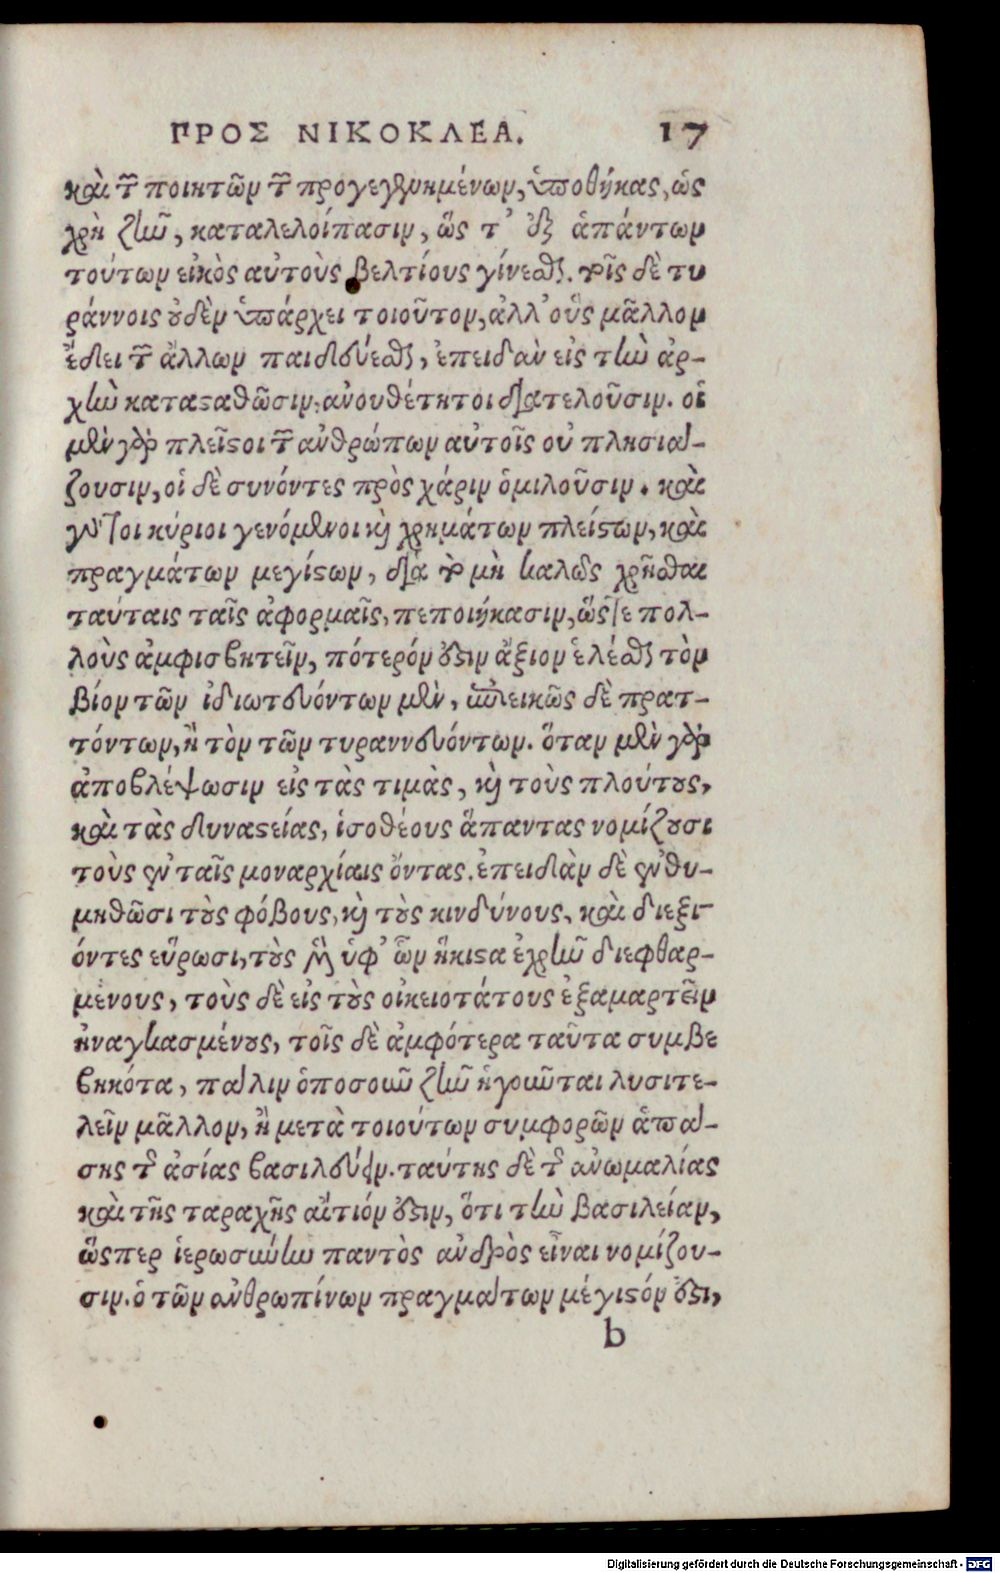 ΠΡΟΣ ΝΙΚΟΚΛΕΑ. 17
καὶ τῶν ποιητῶν τῶν προγεγενημένων, ὑποθήκας, ὡς
χρὴ ζῆν, καταλελοίπασιν, ὥς τ' ἐξ ἁπάντων
τούτων εἰκὸς αὐτοὺς βελτίους γίνεσθαι. τοῖς δὲ τυ
ράννοις οὐδὲν ὑπάρχει τοιοῦτον, ἀλλ' οὓς μᾶλλον
ἔδει τῶν ἄλλων παιδεύεσθαι, ἐπειδὰν εἰς τὴν ἀρ-
χὴν κατασταθῶσιν, ἀνουθέτητοι διατελοῦσιν. οἱ
μὲν γὰρ πλεῖστοι τῶν ἀνθρώπων αὐτοῖς οὐ πλησιά-
ζουσιν, οἱ δὲ συνόντες πρὸς χάριν ὁμιλοῦσιν. καὶ
γάρ τοι κύριοι γενόμενοι καὶ χρημάτων πλείστων, καὶ
πραγμάτων μεγίστων, διὰ τὸ μὴ καλῶς χρῆσθαι
ταύταις ταῖς ἀφορμαῖς, πεποιήκασιν, ὥστε πολ-
λοὺς ἀμφισβητεῖν, πότερόν ἐστιν ἄξιον ἑλέσθαι τὸν
βίον τῶν ἰδιωτευόντων μὲν, ἐπιεικῶς δὲ πρατ-
τόντων, ἢ τὸν τῶν τυραννευόντων. ὅταν μὲν γὰρ
ἀποβλέψωσιν εἰς τὰς τιμὰς, καὶ τοὺς πλούτους,
καὶ τὰς δυναστείας, ἰσοθέους ἅπαντας νομίζουσι
τοὺς ἐν ταῖς μοναρχίαις ὄντας. ἐπειδὰν δὲ ἐνθυ-
μηθῶσι τοὺς φόβους, καὶ τοὺς κινδύνους, καὶ διεξι-
όντες εὕρωσι, τοὺς μὲν ὑφ' ὧν ἥκιστα ἐχρῆν διεφθαρ-
μένους, τοὺς δὲ εἰς τοὺς οἰκειοτάτους ἐξαμαρτεῖν
ἠναγκασμένους, τοῖς δὲ ἀμφότερα ταῦτα συμβε
βηκότα, πάλιν ὁπωσοῦν ζῆν ἡγοῦνται λυσιτε-
λεῖν μᾶλλον, ἢ μετὰ τοιούτων συμφορῶν ἁπά-
σης τῆς ἀσίας βασιλεύειν. ταύτης δὲ τῆς ἀνωμαλίας
καὶ τῆς ταραχῆς αἴτιόν ἐστιν, ὅτι τὴν βασιλείαν,
ὥσπερ ἱερωσύνην παντὸς ἀνδρὸς εἶναι νομίζου-
σιν. ὁ τῶν ἀνθρωπίνων πραγμάτων μέγιστόν ἐστι,
b
Digitalisierung gefördert durch die Deutsche Forschungsgemeinschaft - DFG